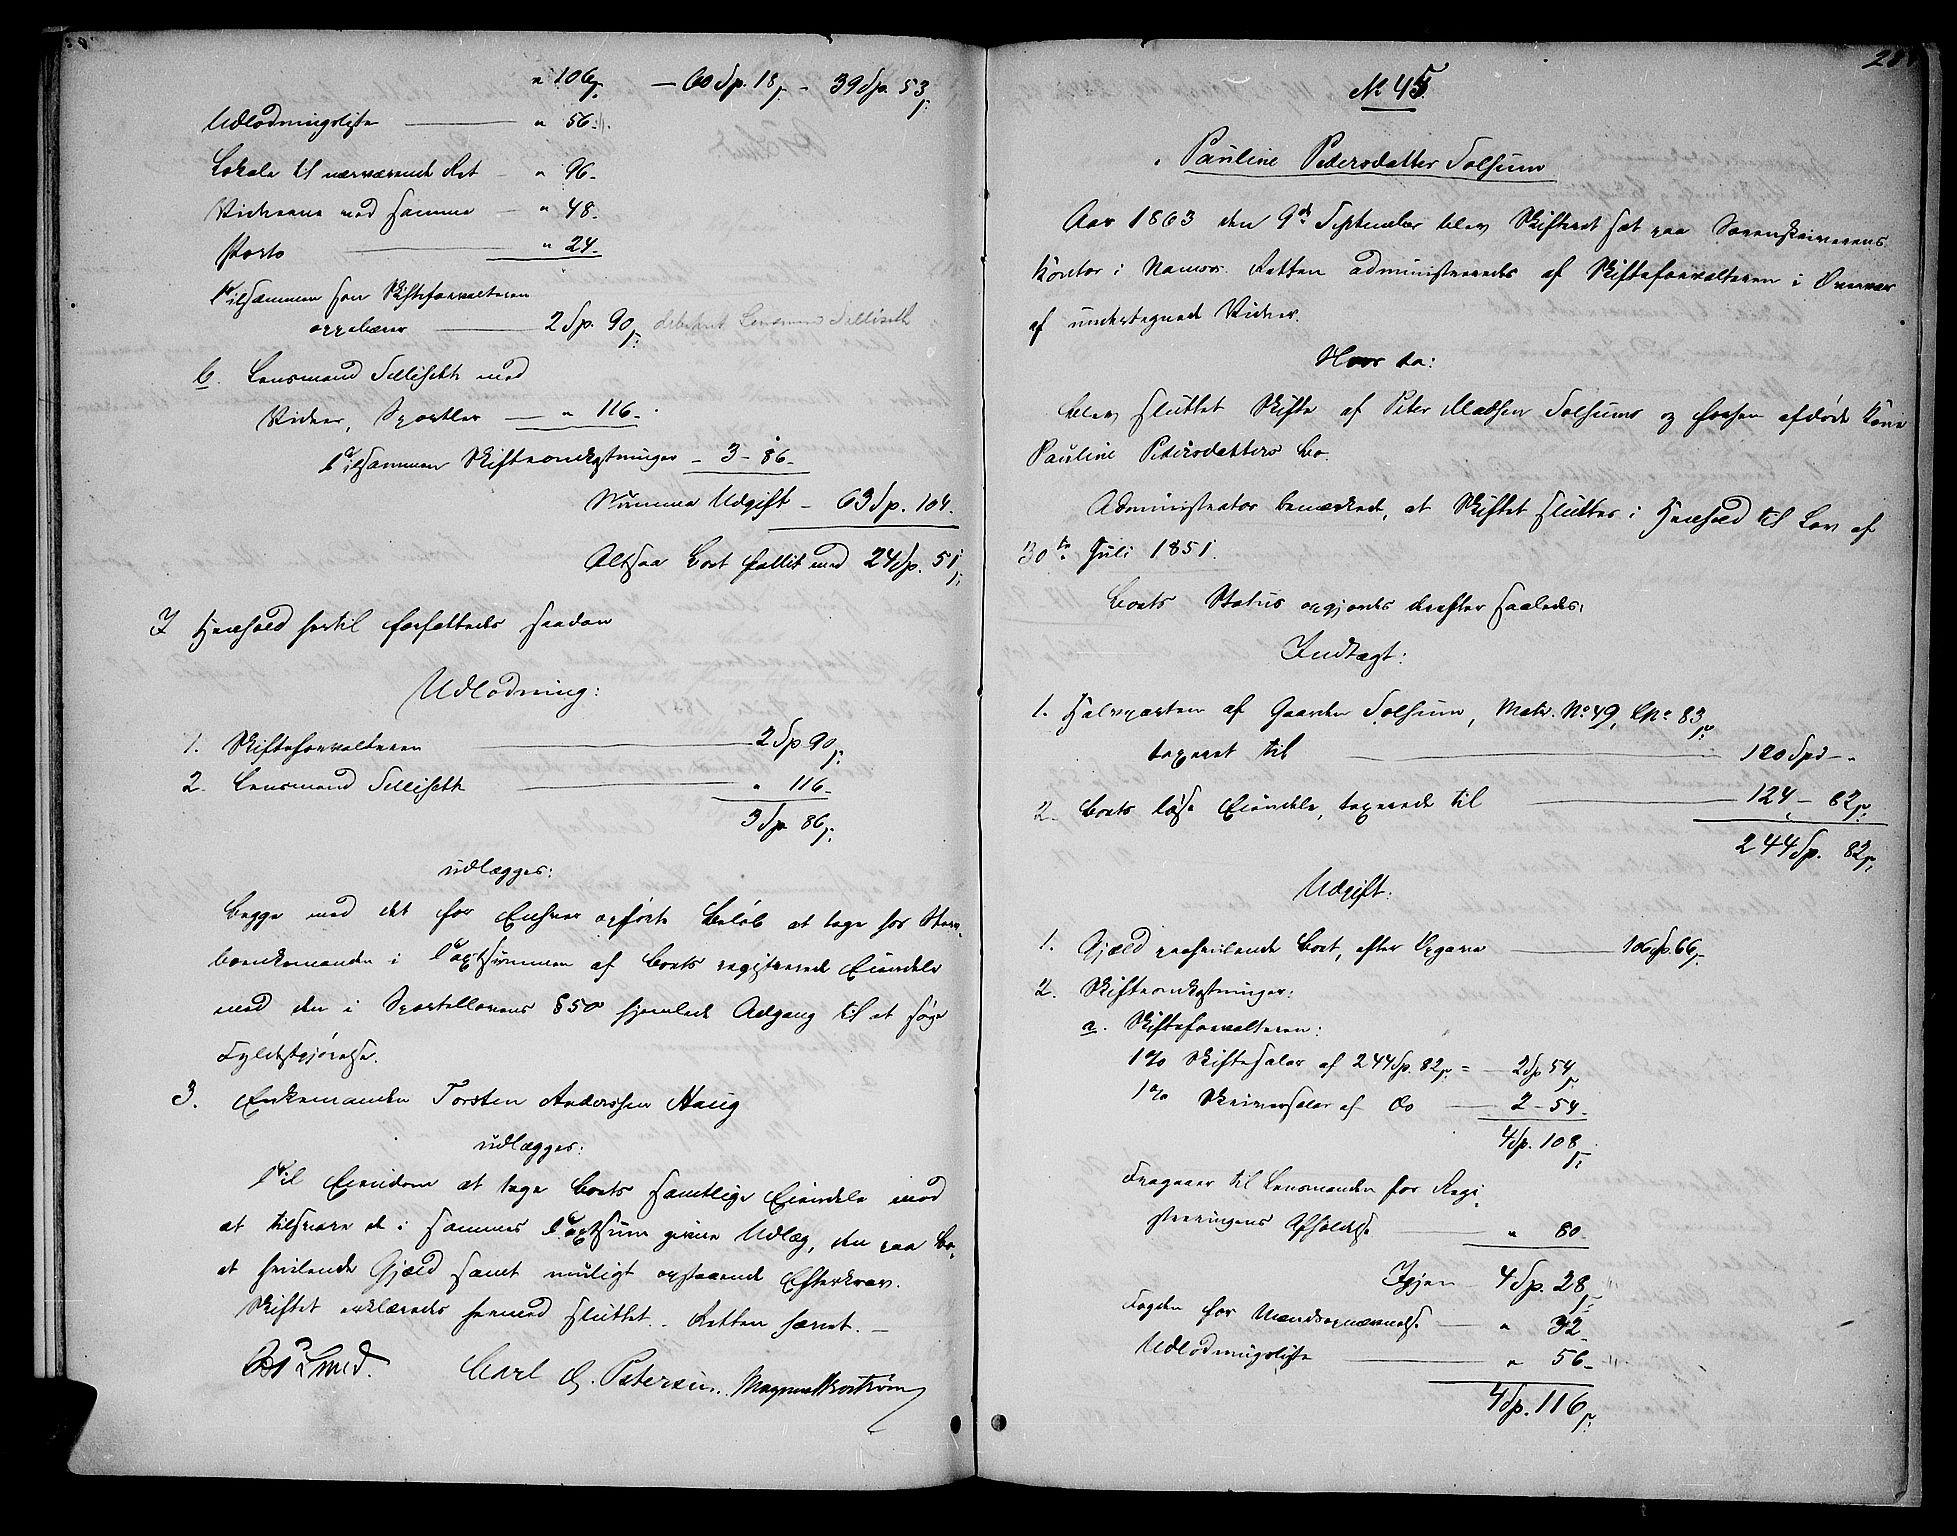 " 106 ß. — 60 Sp. 18 ß. - 39 Sp. 53 ß.
Udlodningsliste — " 56 -
Lokale til nærværende Ret - " 96 -
Vidnerne ved samme — " 48 -
Porto — " 24 -
Tilsammen som Skifteforvalteren
oppebærer — 2 Sp. 90 ß. debiteret Lensmand Sellisett
b. Lensmand Sellisett med
Vidner, Sportler — " 116 -
Tilsammen Skifteomkostninger - 3 - 86 -
Summa Udgift - 63 Sp. 104 -
Altsaa Boet fallit med 24 Sp. 51 ß.
I Henhold hertil forfattedes saadan
Udlodning:
1. Skifteforvalteren — 2 Sp. 90 ß.
2. Lensmand Sellisett — " 116 -
3 Sp. 86 ß.
udlægges:
Begge med det for Enhver opførte Beløb at tage hos Stervboenkemanden
i Taxtsummen af Boets registrerede Eiendele
med den i Sportellovens § 50 hjemlede Adgang til at søge
Fyldestgjørelse.
3. Enkemanden Torsten Anderssen Haug
udlægges:
Til Eiendom at tage Boets samtlige Eiendele mod
at tilsvare de i sammes Taxtsum givne Udlæg, den paa Boet
hvilende Gjæld samt muligt opstaaende Efterkrav.
Skiftet erklæredes hermed sluttet. - Retten hævet. —
Lund. Carl G. Petersen. Magnus Brostrøm
№ 45
Pauline Pedersdatter Solsum
Aar 1863 den 9de September blev Skifteret sat paa Sorenskriverens
Kontor i Namsos. Retten administreredes af Skifteforvalteren i Overvær
af undertegnede Vidner.
Hvor da:
blev sluttet Skifte af Peter Madsen Solsums og hans afdøde Kone
Pauline Pedersdatters Bo.
Administrator bemærkede, at Skiftet sluttes i Henhold til Lov af
30te Juli 1851.
Boets Status opgjordes derefter saaledes:
Indtægt:
1. Halvparten af Gaarden Solsum, Matr. No 49, L No 83,
taxeret til — 120 Spd - "
2. Boets løse Eiendele, taxerede til — 124 - 82 ß.
244 Sp. 82 ß.
Udgift:
1. Gjæld paahvilende Boet, efter Opgave — 106 Sp. 66 ß.
2. Skifteomkostninger:
a. Skifteforvalteren:
1% Skiftesalær af 244 Sp. 82 ß. = — 2 Sp. 54 ß.
1% Skriversalær af do — 2 - 54 -
4 Sp. 108 ß.
Fragaaer til Lensmanden for Registreringens
Afholdelse — " 80 -
Igjen — 4 Sp. 28 ß.
Fogden for Mændsopnævnelse — " 32
Udlodningsliste — " 56 -
4 Sp. 116 ß.